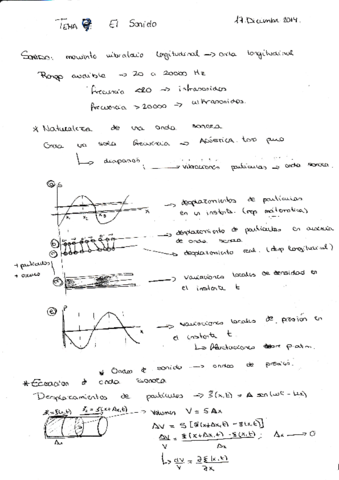 TEMA El Sonido
17 Diciembre 2014
SONIDO: movimiento vibratorio longitudinal → onda longitudinal
Rango audible → 20 a 20000 Hz
frecuencia <20 → infrasonidos
frecuencia > 20000 → ultrasonidos.
* Naturaleza de una onda sonora
una sola frecuencia → tono puro
↳ diapasón
→ vibraciones partículas → onda sonora.
→ desplazamientos de partículas
en un instante. (rep. matemática)
→ desplazamiento de partículas en ausencia
de onda sonora
→ desplazamiento real. (desp longitudinal)
+ partículas
→ variaciones locales de densidad en
el instante t
→ variaciones locales de presión en
el instante t
↳ fluctuaciones patm.
* Ondas de sonido → ondas de presión.
* Ecuación de onda sonora
Desplazamientos de partículas → ξ(x,t) = A sen(ωt - kx)
ξ1 = ξ(x,t) ξ2 = ξ(x+Δx,t) → volumen V = SΔx
ΔV = S [ξ(x+Δx,t) - ξ(x,t)]
ΔV/V = ξ(x+Δx,t) - ξ(x,t) / Δx , Δx → 0
Δx
↳ ΔV/V = ∂ξ(x,t)/∂x